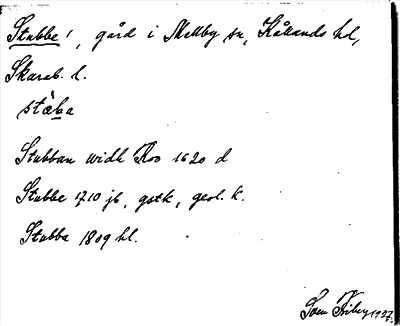 Stubbe ¹, gård i Mellby sn, Kållands hd,
Skarab. l.
stàba
Stubban widh Roo 1620 d
Stubbe 1710 jb, gstk, geol. k.
Stubba 1809 hl.
1927.